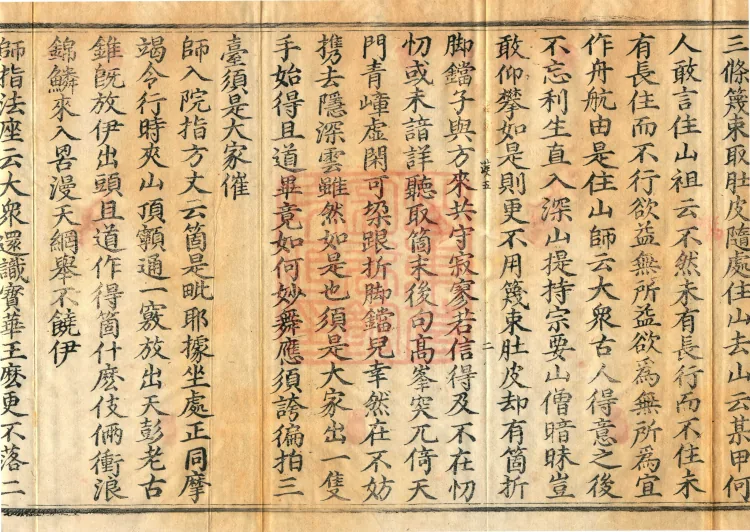 三條篾束取肚皮隨處住山去山云某甲何
人敢言住山祖云不然未有長行而不住未
有長住而不行欲益無所益欲為無所為宜
作舟航由是住山師云大衆古人得意之後
不忘利生直入深山提持宗要山僧暗昧豈
敢仰攀如是則更不用篾束肚皮却有箇折
脚鐺子與方來共守寂寥若信得及不在忉
忉或未諳詳聽取箇末後句高峯突兀倚天
門青嶂虛閑可垜跟折脚鐺兒幸然在不妨
携去隱深雲雖然如是也須是大家出一隻
手始得且道畢竟如何妙舞應須誇徧拍三
臺須是大家催
師入院指方丈云箇是毗耶據坐處正同摩
竭令行時夾山頂𩕳通一竅放出天彭老古
錐旣放伊出頭且道作得箇什麽伎倆衝浪
錦鱗來入罟漫天網舉不饒伊
師指法座云大衆還識寶華王麽更不落二